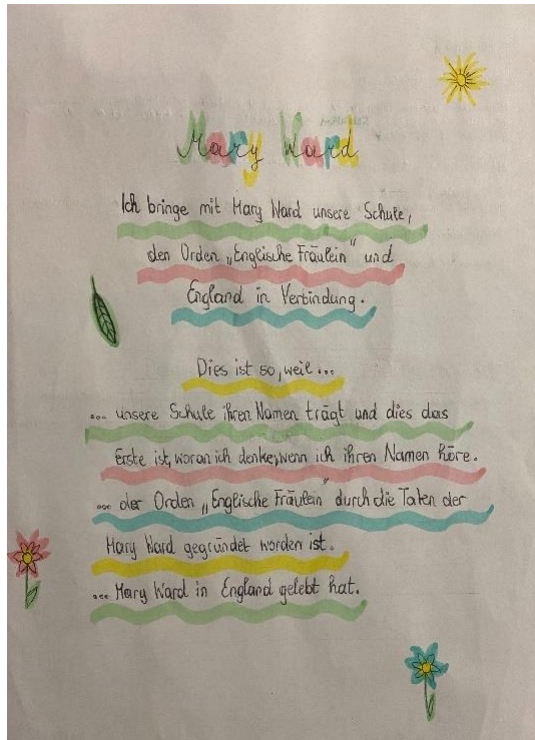 Mary Ward
Ich bringe mit Mary Ward unsere Schule,
den Orden „Englische Fräulein" und
England in Verbindung.
Dies ist so, weil...
... unsere Schule ihren Namen trägt und dies das
Erste ist, woran ich denke, wenn ich ihren Namen höre.
... der Orden „Englische Fräulein" durch die Taten der
Mary Ward gegründet worden ist.
... Mary Ward in England gelebt hat.